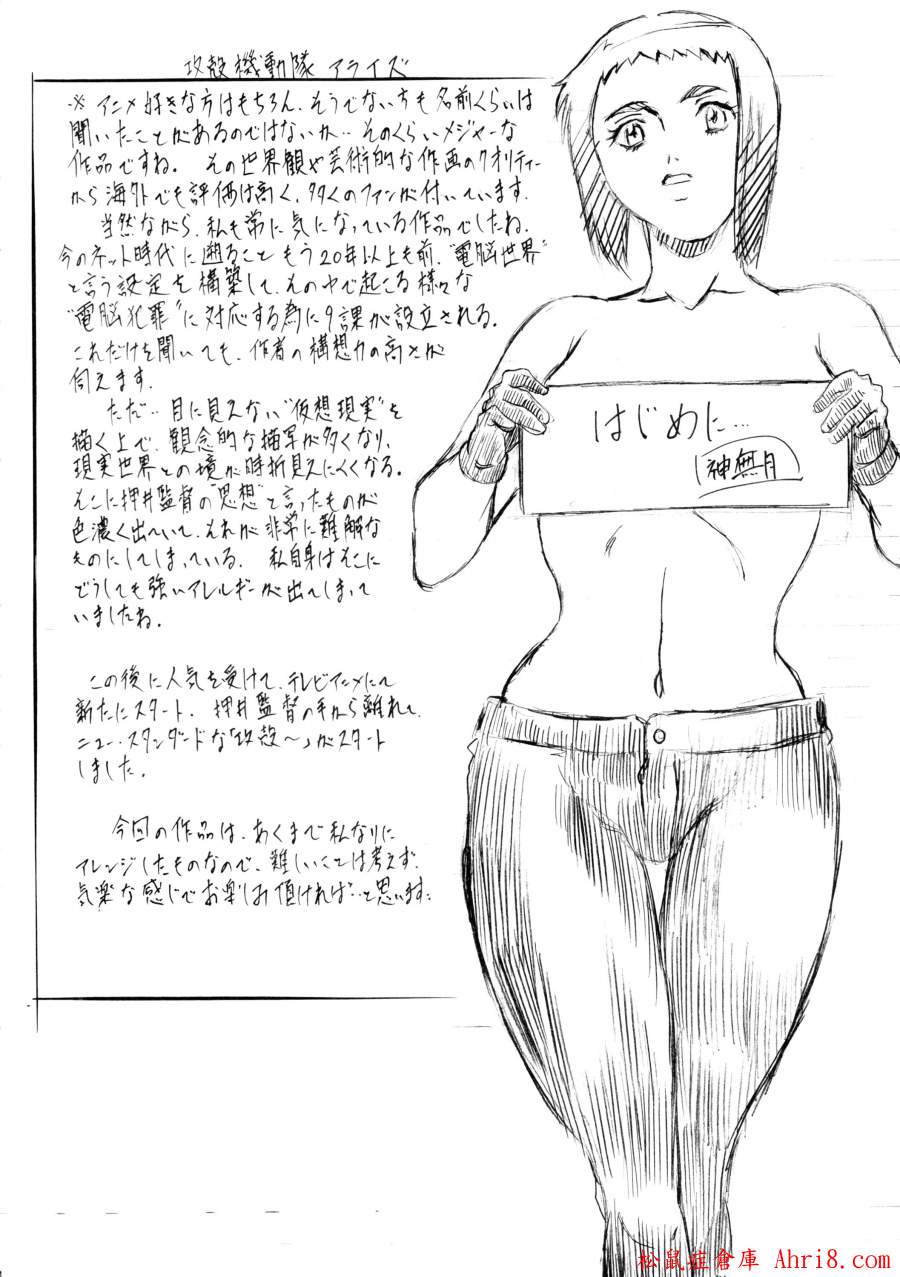 攻殻機動隊 アライズ
※ アニメ好きな方はもちろん、そうでない方も名前くらいは
聞いたことがあるのではないか… そのくらいメジャーな
作品ですね。 その世界観や芸術的な作画のクオリティー
から海外でも評価は高く、多くのファンが付いています。
当然ながら、私も常に気になっている作品でしたね。
今のネット時代に遡ること もう20年以上も前、"電脳世界"
と言う設定を構築して、その中で起こる様々な
"電脳犯罪"に対応する為に9課が設立される。
これだけを聞いても、作者の構想力の高さが
伺えます。
ただ… 目に見えない"仮想現実"を
描く上で、観念的な描写が多くなり、
現実世界との境が時折見えにくくなる。
そこに押井監督の"思想"と言ったものが
色濃く出ていて、それが非常に難解な
ものにしてしまっている。 私自身はそこに
どうしても強いアレルギーが出てしまって
いましたね。
この後に人気を受けて、テレビアニメにて
新たにスタート。 押井監督の手から離れて、
ニュー・スタンダードな「攻殻〜」がスタート
しました。
今回の作品は、あくまで私なりに
アレンジしたものなので、難しいことは考えず、
気楽な感じでお楽しみ頂ければ…と思います。
はじめに…
神無月
松鼠症倉庫 Ahri8.com